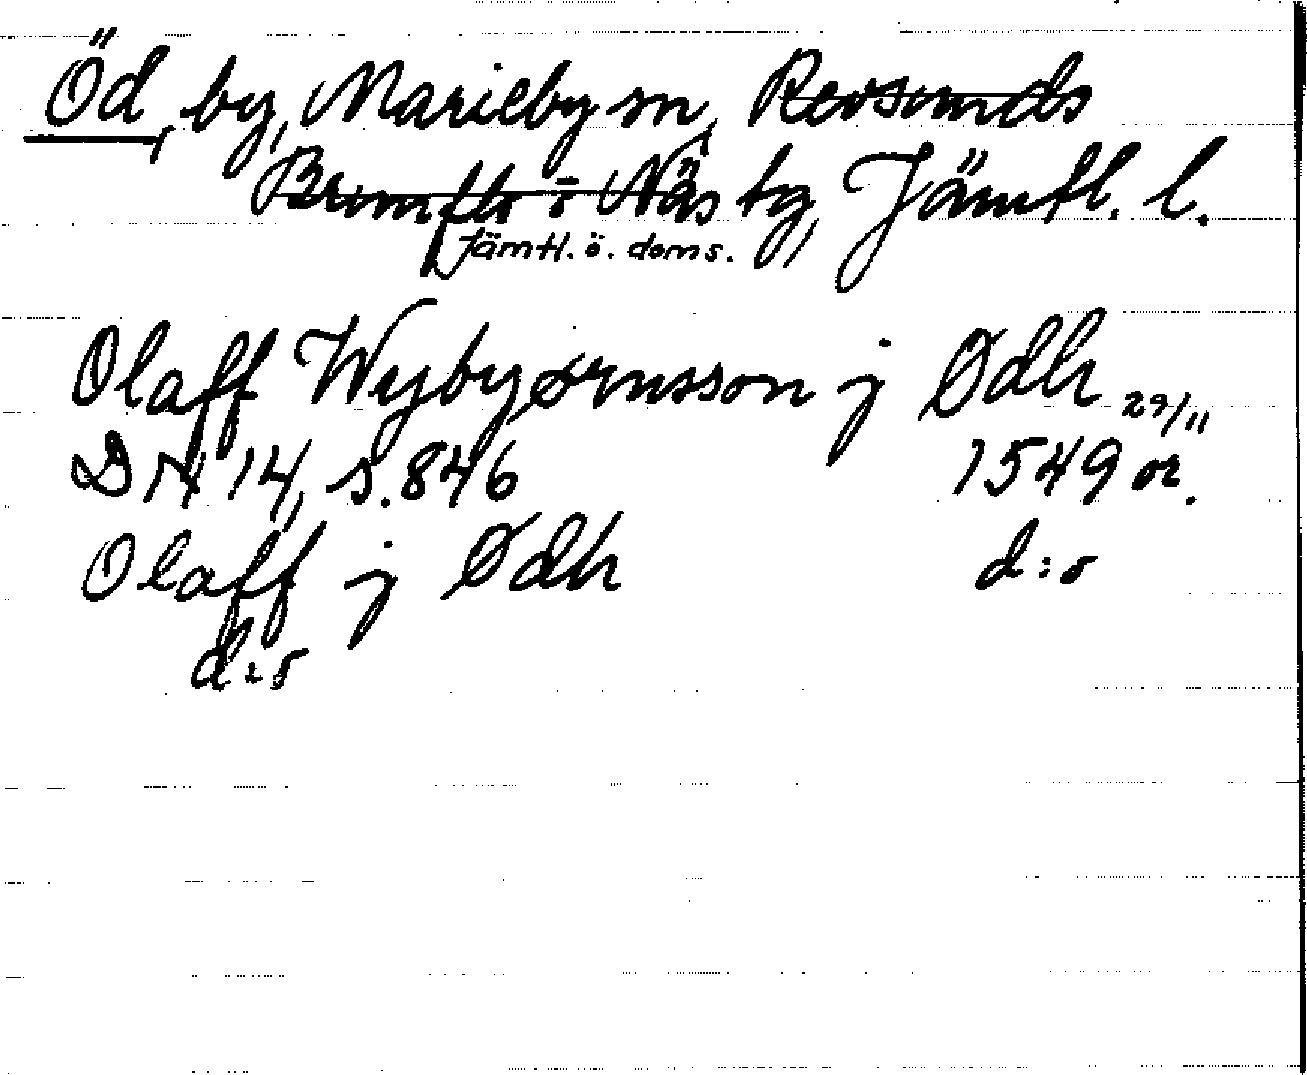 Öd, by, Marieby sn, Revsunds
Brunflo o Näs tg, Jämtl. l.
Jämtl. ö. doms.
Olaff Wybyørnsson j Ødh 29/11
DN 14, s. 846 1549 or.
Olaff j Ødh d:o
d:o